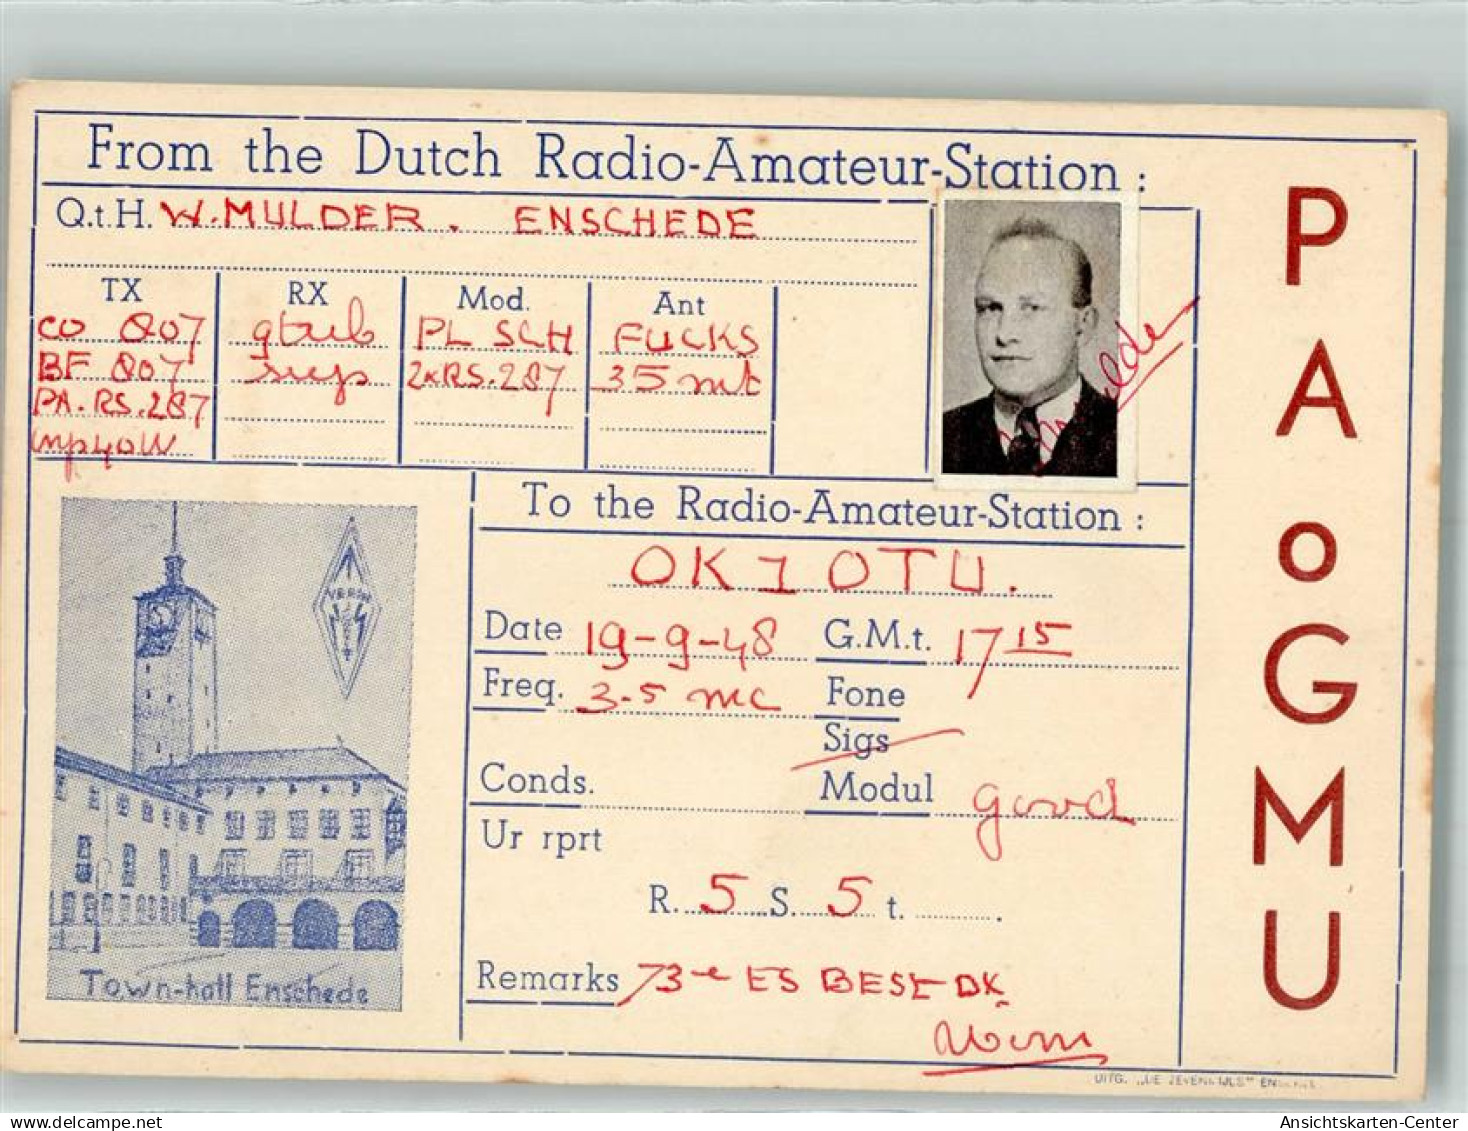 From the Dutch Radio-Amateur-Station :
Q.t.H. W. MULDER. ENSCHEDE
TX RX Mod. Ant
CO 807 9tub PL SCH FUCKS
BF 807 sup 2xRS.287 35 mt
PA. RS.287
inp 40W
Town-hall Enschede
To the Radio-Amateur-Station :
OK1OTU.
Date 19-9-48 G.M.t. 17 15
Freq. 3.5 mc Fone
Sigs
Conds. Modul good
Ur rprt
R. 5 S. 5 t.
Remarks 73 ES BEST DX
Wim
PAoGMU
UITG.
Ansichtskarten-Center